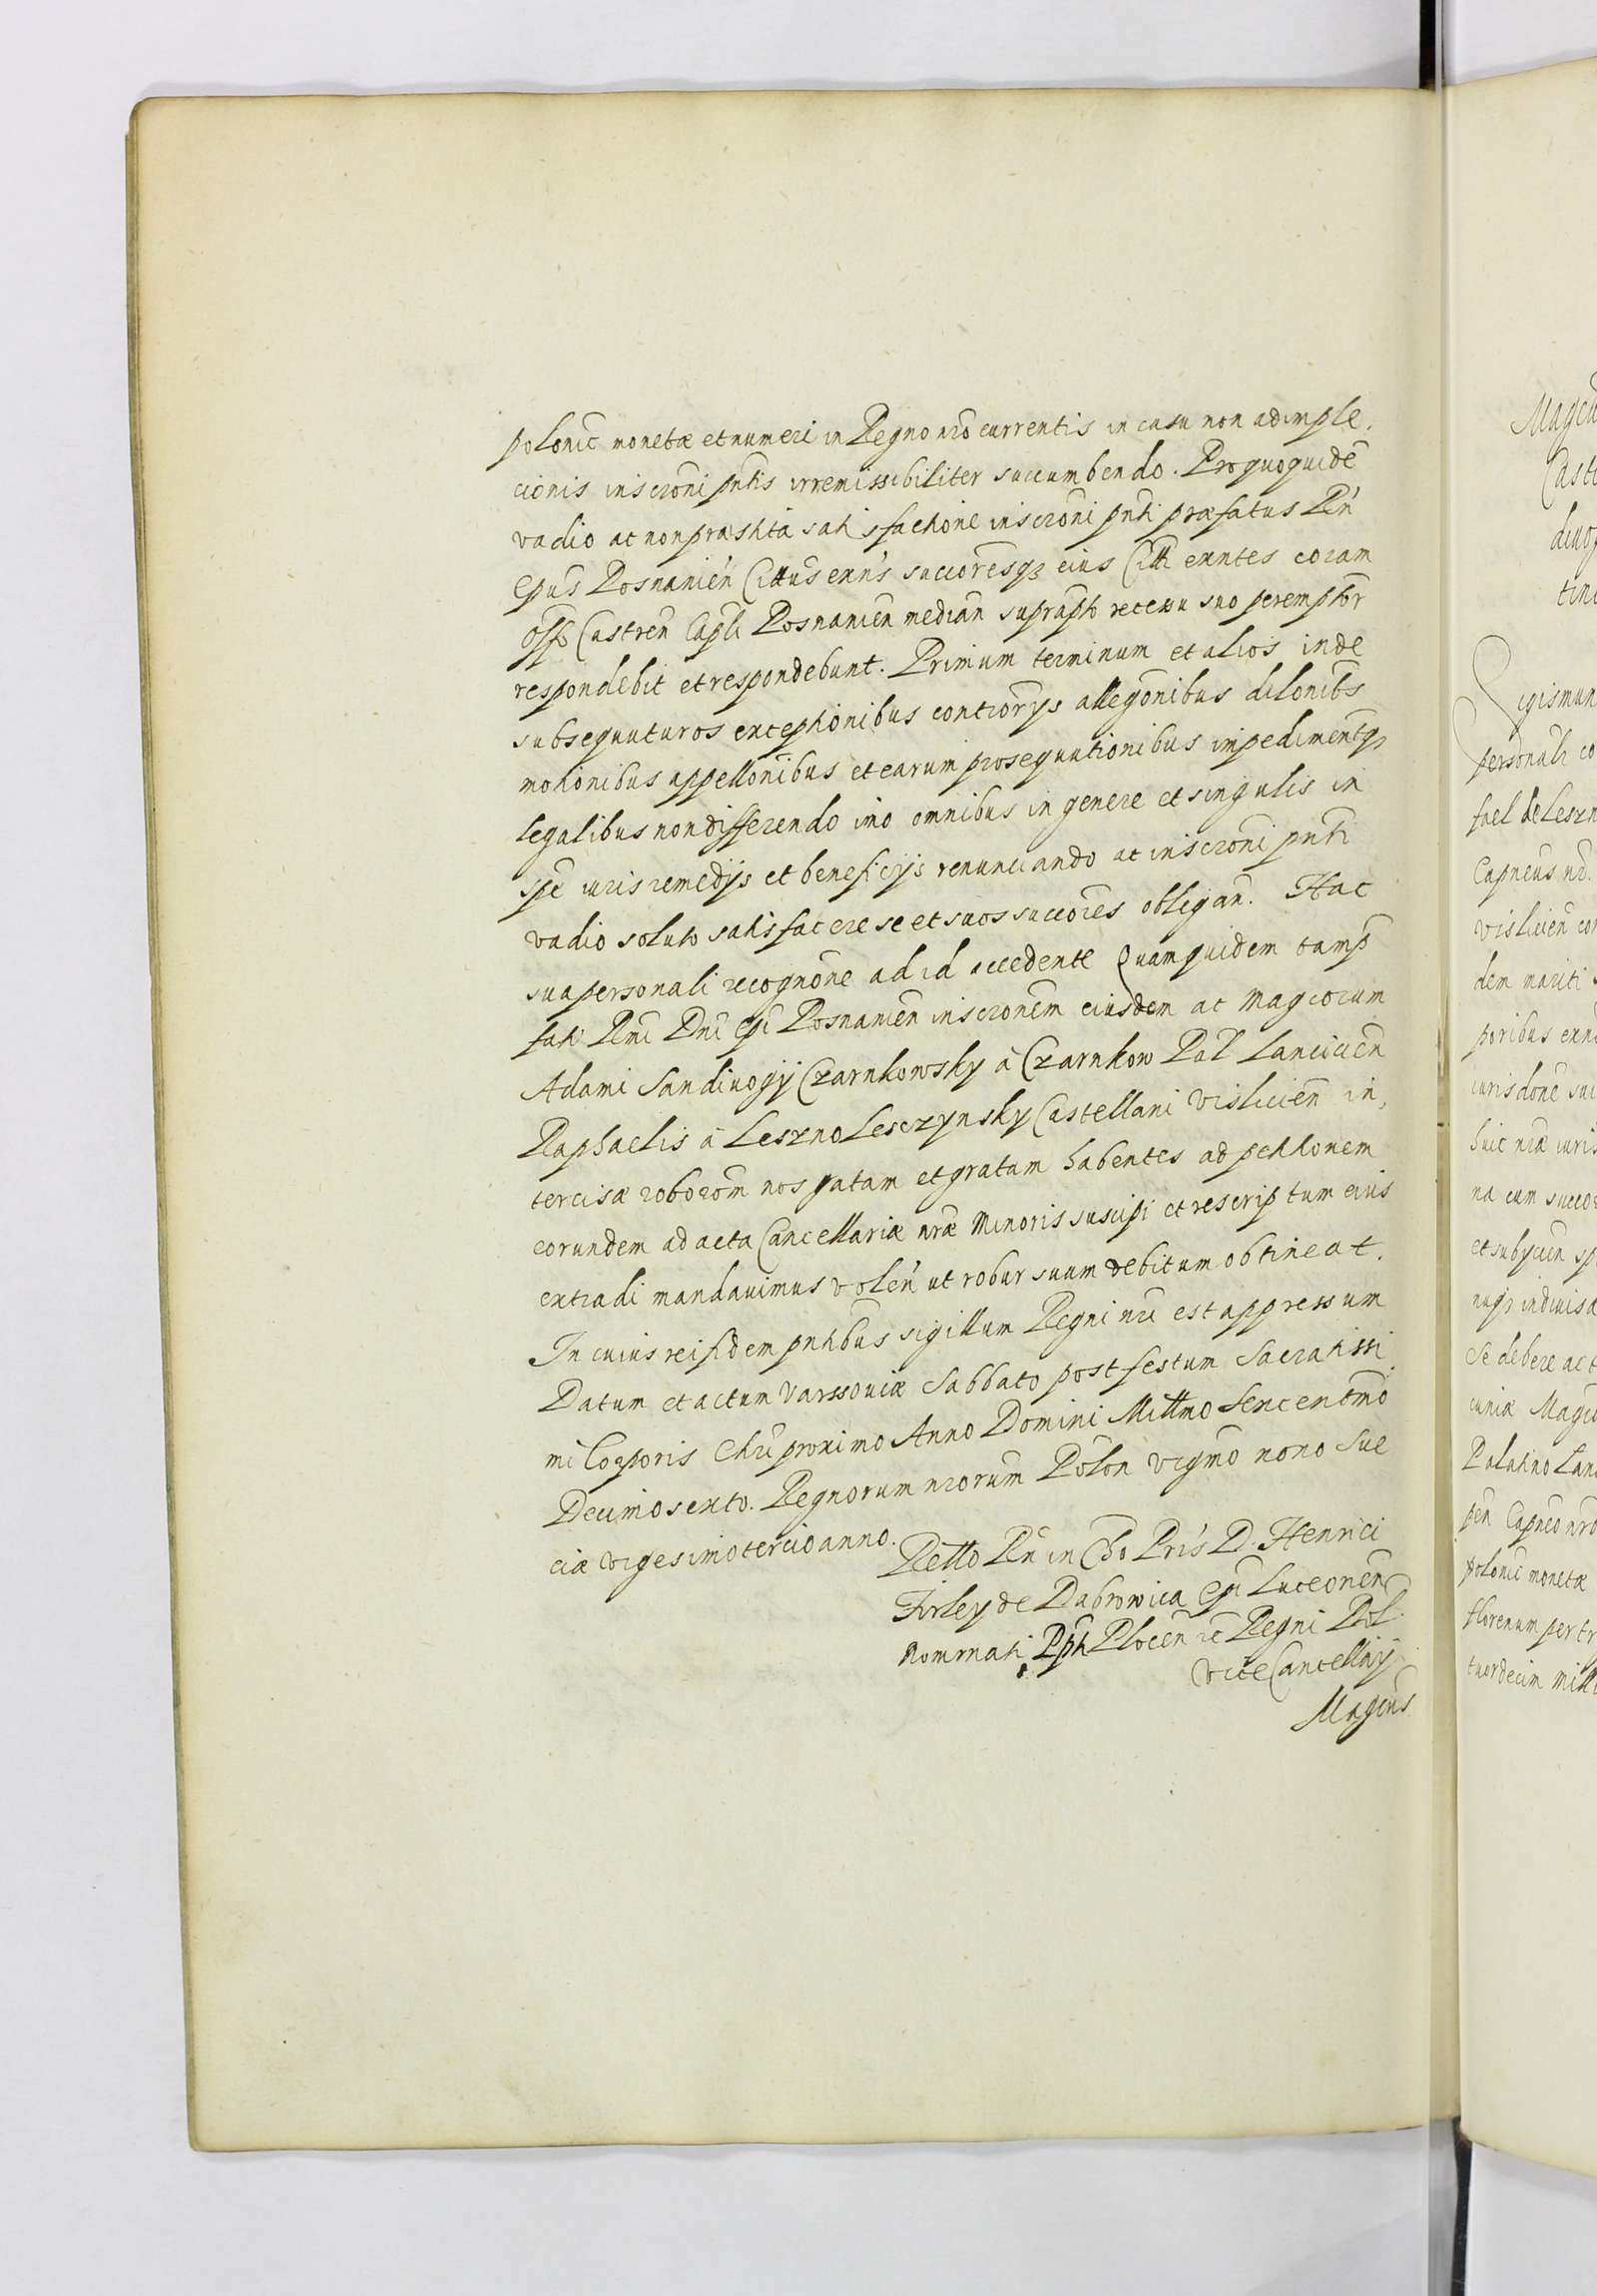 polonic monetæ et numeri in Regno nro currentis in casu non adimple,
cionis inscroni pntis irremissibiliter succumbendo. Pro quo quidē
vadio ac non præstita satisfactione inscroni pnti præfatus Rn
Epus Posnanien Cittus exns succoresqz eius Citti exntes coram
Offo Castren Capli Posnanien median supraspto recessu suo peremptor
respondebit et respondebunt. Primum terminum et alios inde
subsequuturos exceptionibus controrys allegonibus dilonibs
motionibus appellonibus et earum prosequutionibus impedimentqz
legalibus non differendo imo omnibus in genere et singulis in
spe iuris remedijs et beneficijs renunciando ac inscroni pnti
vadio soluto satisfacere se et suos succores obligan. Hac
sua personali recognone ad id accedente Quam quidem tamp
fati Rmi Dni Epi Posnanien inscronem eiusdem ac Magcorum
Adami Sandivogij Czarnkowsky à Czarnkow Pal Lancicien
Raphaelis à Leszno Lesczynsky Castellani Vislicien in,
tercisæ roborom nos gatam et gratam habentes ad petitionem
eorundem ad acta Cancellariæ nræ Minoris suscipi et rescriptum eius
extradi mandavimus volen ut robur suum debitum obtineat.
In cuius rei fidem pntibus sigillum Regni nri est appressum
Datum et actum Varssoviæ Sabbato post festum Sacratissi,
mi Corporis Chri proximo Anno Domini Millmo Sexcentmo
Decimo sexto. Regnorum nrorum Polon vigmo nono Sue
ciæ vigesimo tercio anno.
Relto Rn in Chro Pris D. Henrici
Firley de Dabrowica Epi Luceonen
Nominati Ppti Plocen ic Regni Pol.
Vice Cancellarij
Magcus
Magcu
Caste
divog
tinu
Sigismun
personali co
fael de Leszn
Capneus nr.
Vislicien cor
dem mariti s
poribus exn
iurisdone sui
huic nræ iuris
na cum succor
et subycien sp
nuqz indivisa
Se debere ac t
cuniæ Magco
Palatino Lan
pen Capneo nro
polonic monetæ
florenum per tr
tuordecim Milli